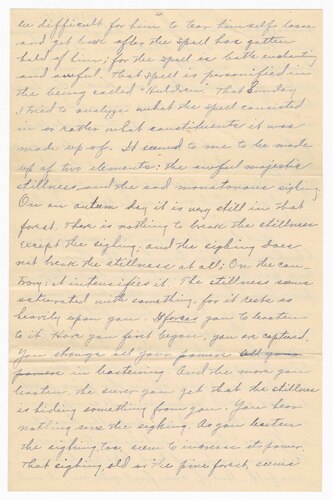 be difficult for him to tear himself loose
and get back after the spell has gotten
hold of him; for the spell is both enchanting
and awful. That spell is personified in
the being called "Huldren". That Sunday
I tried to analyze what the spell consisted
in or rather what constituents it was
made up of. It seemed to me to be made
up of two elements: the awful majestic
stillness and the sad monotonous sighing.
On an autumn day it is very still in that
forest. There is nothing to break the stillness
except the sighing; and the sighing does
not break the stillness at all; On the con
trary; it intensifies it. The stillness seems
saturated with something, for it rests so
heavily upon you. It forces you to listen
to it. Have you first begun, you are captured.
You change all your powers all your
powers in listening. And the more you
listen, the surer you get that the stillness
is hiding something from you. You hear
nothing save the sighing. As you listen
the sighing, too, seems to increase its power.
That sighing, old as the pine forest, seems